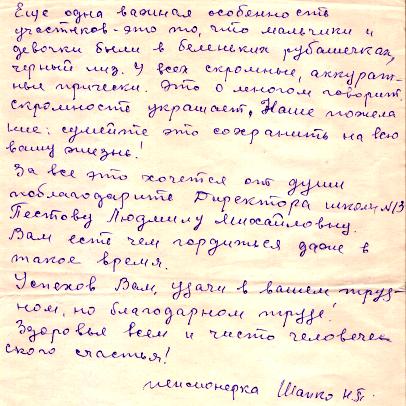 Еще одна важная особенность
участников - это то, что мальчики и
девочки были в беленьких рубашечках,
черный низ. У всех скромные, аккурат-
ные прически. Это о многом говорит.
Скромность украшает. Наше пожела
ние: сумейте это сохранить на всю
вашу жизнь!
За все это хочется от души
поблагодарить Директора школы №13
Пестову Людмилу Михайловну.
Вам есть чем гордиться даже в
такое время.
Успехов Вам, удачи в вашем труд-
ном, но благодарном труде!
Здоровья всем и чисто человечес
ского счастья!
пенсионерка Шапко Н.П.